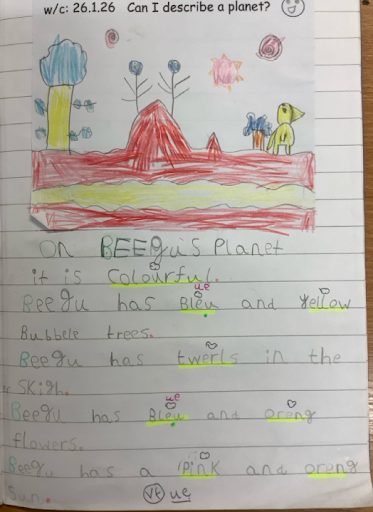 w/c: 26.1.26 Can I describe a planet?
On BEEgu's Planet
it is Colourful.
ue
Beegu has Bleu and yellow
Bubbele trees.
Beegu has twerls in the
Skigh.
ue
Beegu has Bleu and oreng
flowers.
Beegu has a Pink and oreng
Sun.
VF ue